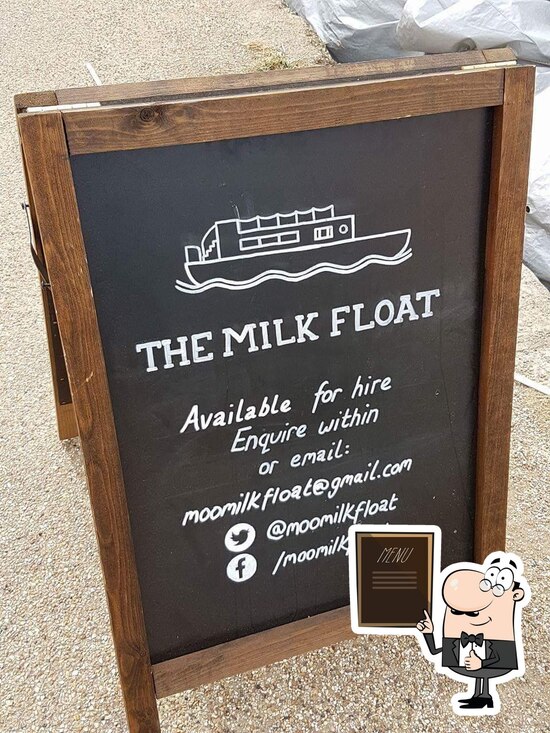 THE MILK FLOAT
Available for hire
Enquire within
or email:
moomilkfloat@gmail.com
@moomilkfloat
MENU